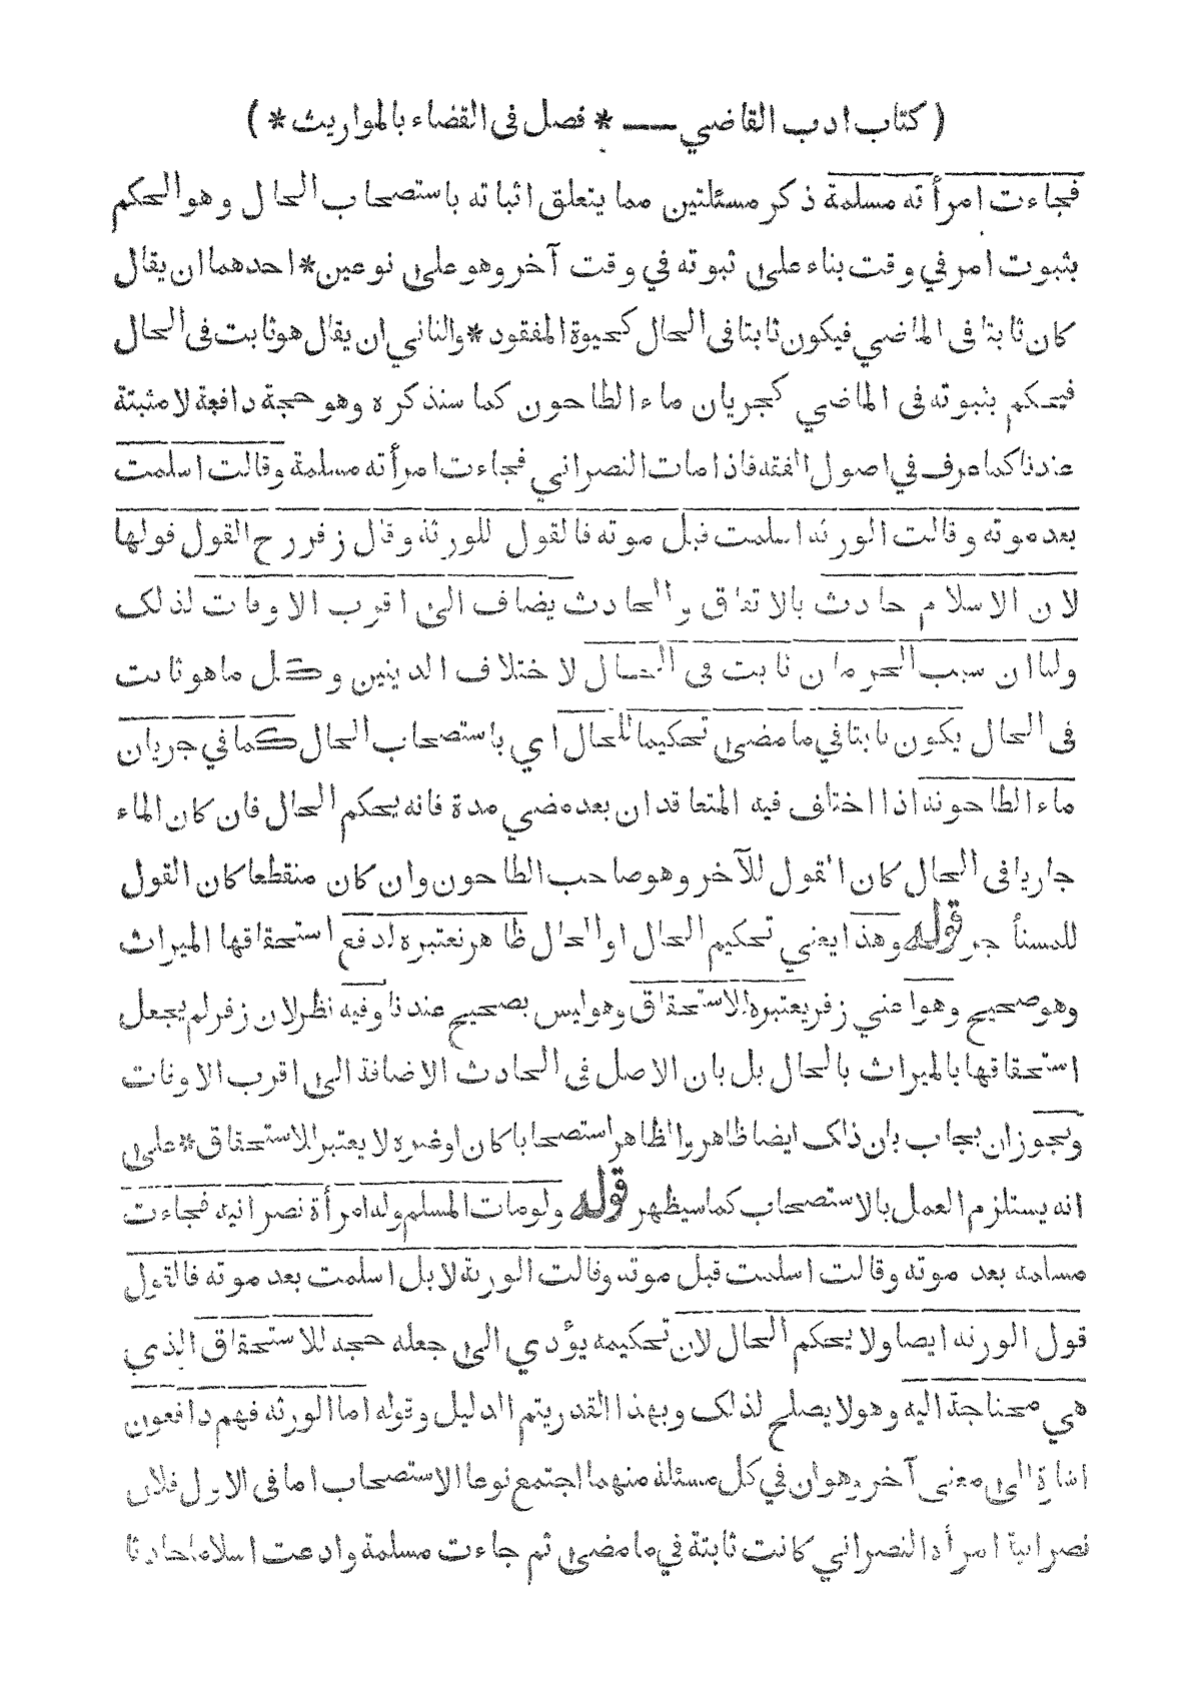 ( كتاب ادب القاضي — * فصل فى القضاء بالمواريث * )
فجاءت امرأته مسلمة ذكر مسئلتين مما يتعلق اثباته باستصحاب الحال وهو الحكم
بثبوت امر في وقت بناء على ثبوته في وقت آخر وهو على نوعين * احدهما ان يقال
كان ثابتا فى الماضي فيكون ثابتا فى الحال كحيوة المفقود * والثاني ان يقال هو ثابت فى الحال
فيحكم بثبوته فى الماضي كجريان ماء الطاحون كما سنذكره وهو حجة دافعة لا مثبتة
عندنا كما عرف في اصول الفقه فاذا مات النصراني فجاءت امرأته مسلمة وقالت اسلمت
بعد موته وقالت الورثة اسلمت قبل موته فالقول للورثة وقال زفر رح القول قولها
لان الاسلام حادث بالاتفاق والحادث يضاف الى اقرب الاوقات لذلك
ولنا ان سبب الحرمان ثابت فى الحال لاختلاف الدينين وكل ما هو ثابت
فى الحال يكون ثابتا في ما مضى تحكيما للحال اي باستصحاب الحال كما في جريان
ماء الطاحونة اذا اختلف فيه المتعاقدان بعد مضي مدة فانه يحكم الحال فان كان الماء
جاريا فى الحال كان القول للآخر وهو صاحب الطاحون وان كان منقطعا كان القول
للمستأجر قوله وهذا يعني تحكيم الحال او الحال ظاهر نعتبره لدفع استحقاقها الميراث
وهو صحيح وهو اعني زفر يعتبره للاستحقاق وهو ليس بصحيح عندنا وفيه نظر لان زفر لم يجعل
استحقاقها بالميراث بالحال بل بان الاصل فى الحادث الاضافة الى اقرب الاوقات
ويجوز ان يجاب بان ذلك ايضا ظاهر والظاهر استصحابا كان او غيره لا يعتبر للاستحقاق * على
انه يستلزم العمل بالاستصحاب كما سيظهر قوله ولو مات المسلم وله امرأة نصرانية فجاءت
مسلمة بعد موته وقالت اسلمت قبل موته وقالت الورثة لا بل اسلمت بعد موته فالقول
قول الورثة ايضا ولا يحكم الحال لان تحكيمه يؤدي الى جعله حجة للاستحقاق الذي
هي محتاجة اليه وهو لا يصلح لذلك وبهذا القدر يتم الدليل وقوله اما الورثة فهم دافعون
اشارة الى معنى آخر وهو ان في كل مسئلة منهما اجتمع نوعا الاستصحاب اما فى الاول فلان
نصرانية امرأة النصراني كانت ثابتة في ما مضى ثم جاءت مسلمة وادعت اسلاما حادثا